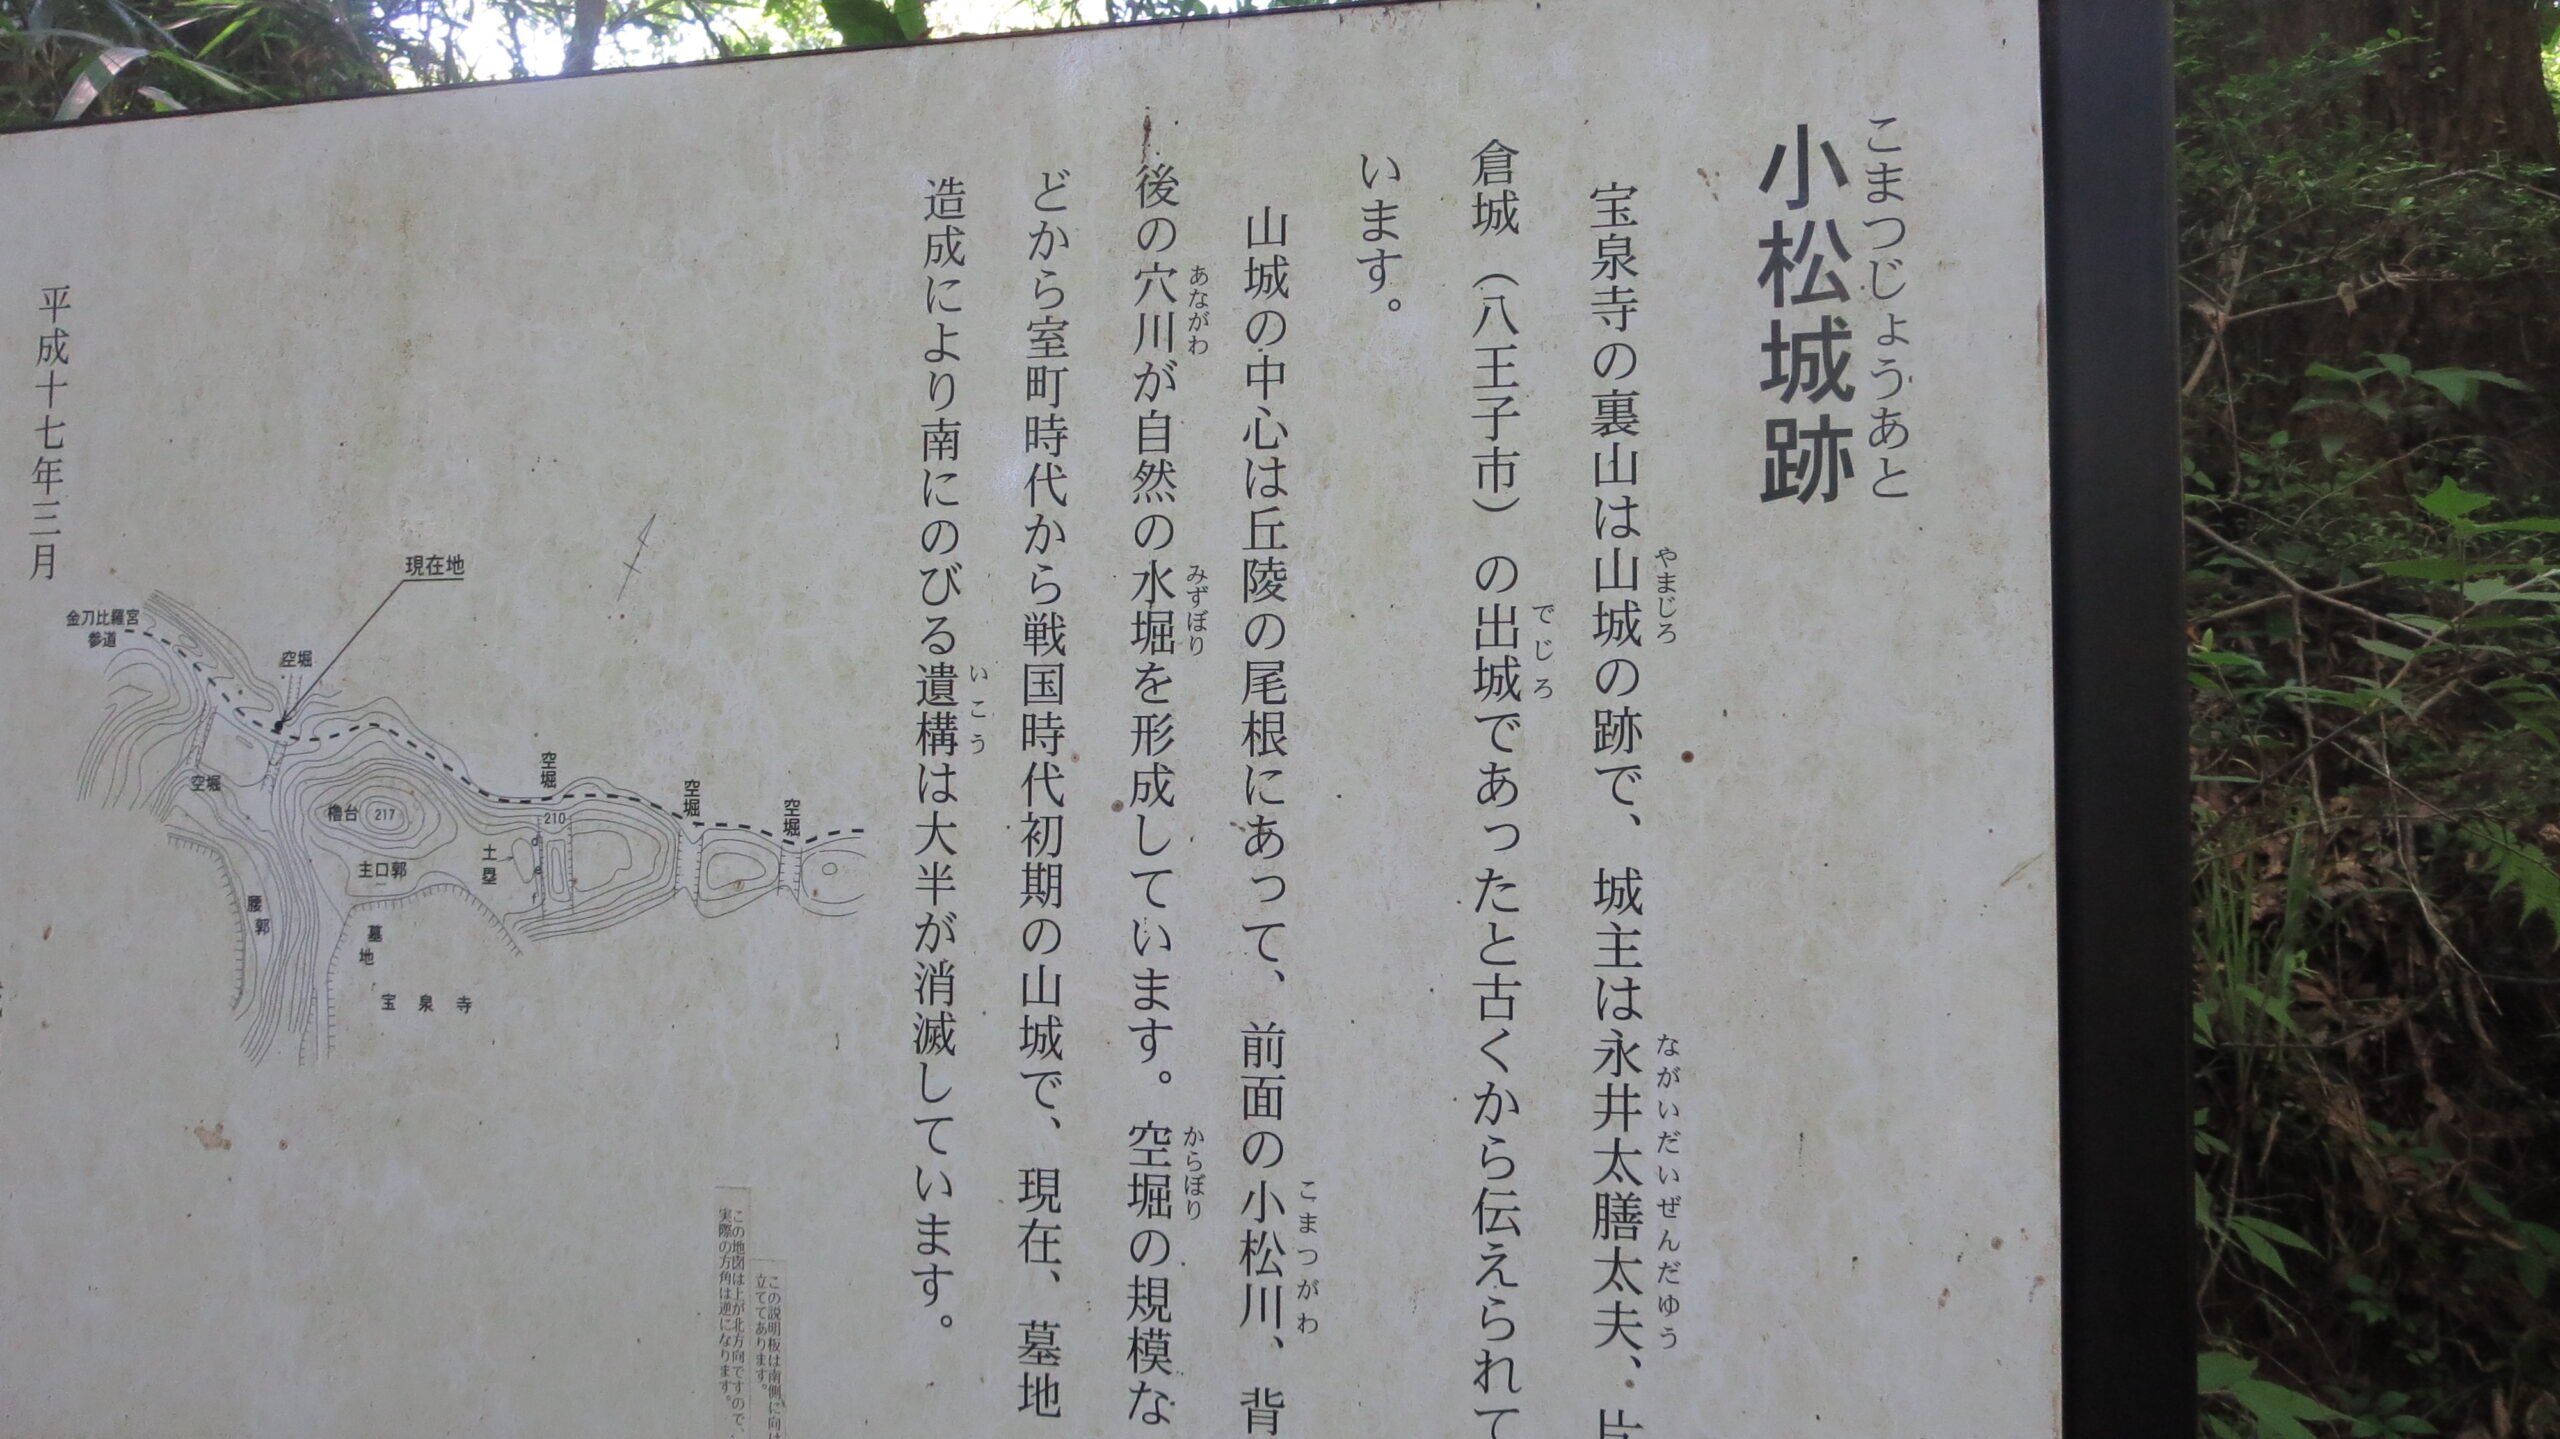 こまつじょうあと
小松城跡
宝泉寺の裏山は山城の跡で、城主は永井太膳太夫、片
やまじろ
ながいだいぜんだゆう
倉城（八王子市）の出城であったと古くから伝えられて
でじろ
います。
山城の中心は丘陵の尾根にあって、前面の小松川、背
こまつがわ
後の穴川が自然の水堀を形成しています。空堀の規模な
あながわ
みずぼり
からぼり
どから室町時代から戦国時代初期の山城で、現在、墓地
造成により南にのびる遺構は大半が消滅しています。
いこう
平成十七年三月
現在地
金刀比羅宮
参道
空堀
空堀
空堀
空堀
空堀
櫓台
217
210
主口郭
土塁
d
e
f
腰郭
墓地
宝泉寺
この説明板は南側に向け
立ててあります。
この地図は上が北方向ですので、
実際の方角は逆になります。